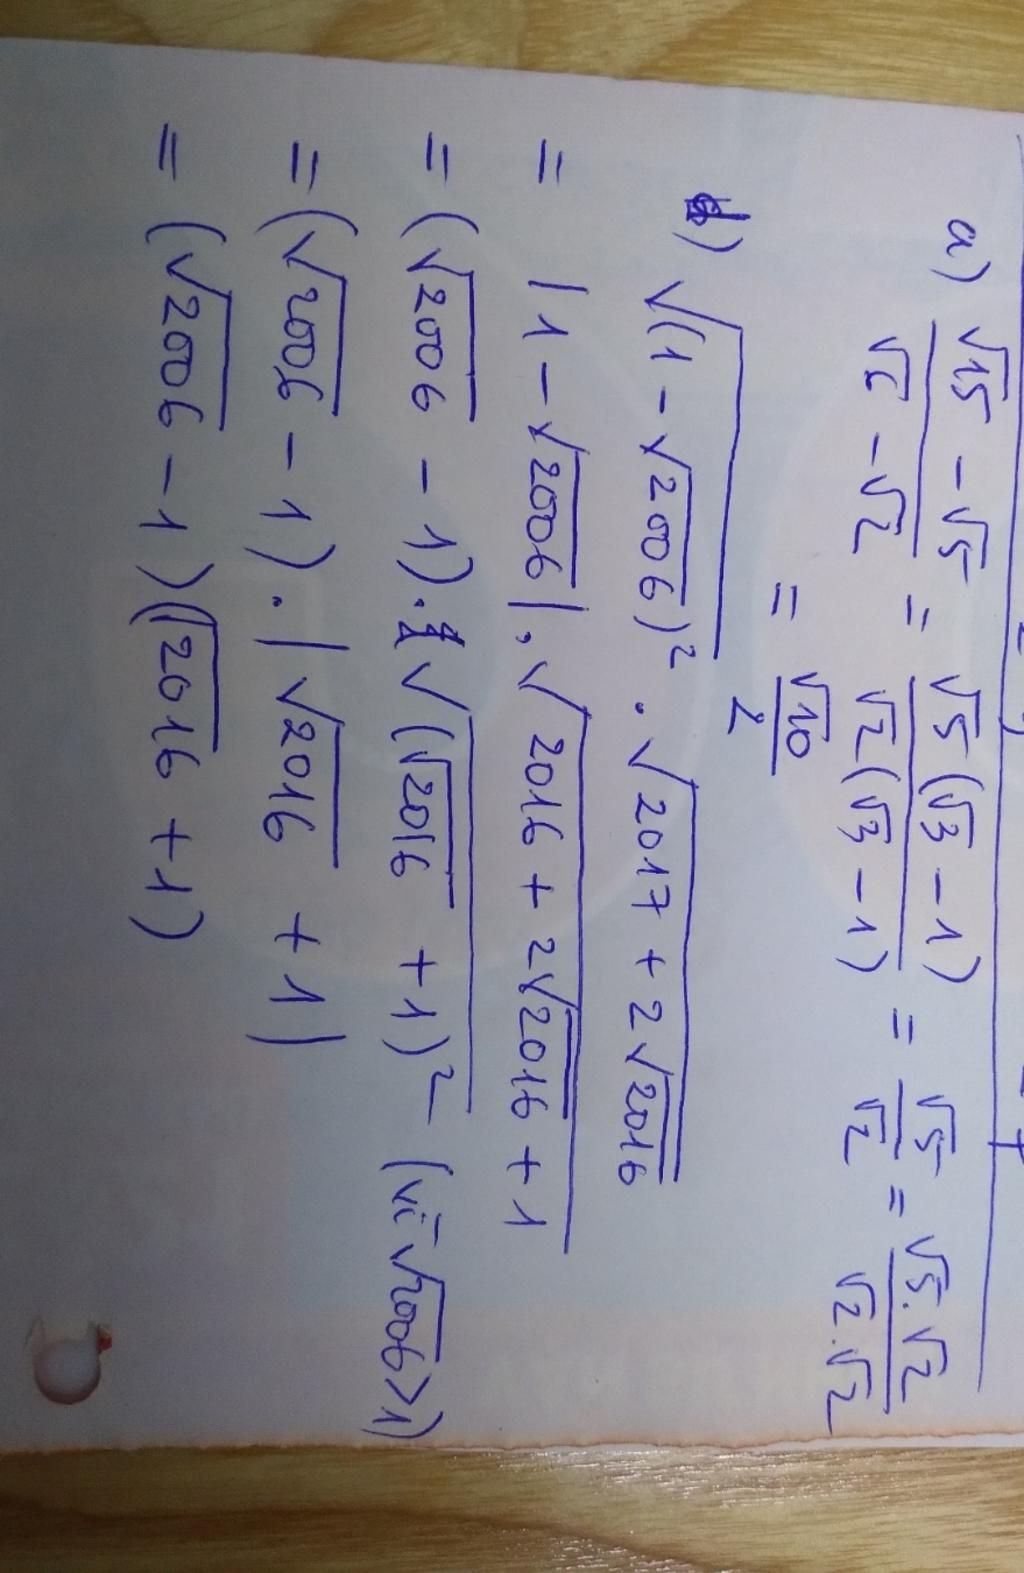 a) \frac{√15 - √5}{√6 - √2} = \frac{√5(√3 - 1)}{√2(√3 - 1)} = \frac{√5}{√2} = \frac{√5.√2}{√2.√2}
= \frac{√10}{2}
b) √(1 - √2006)² . √2017 + 2√2016
= |1 - √2006| . √2016 + 2√2016 + 1
= (√2006 - 1) . √(√2016 + 1)² (vì √2006 > 1)
= (√2006 - 1) . |√2016 + 1|
= (√2006 - 1)(√2016 + 1)